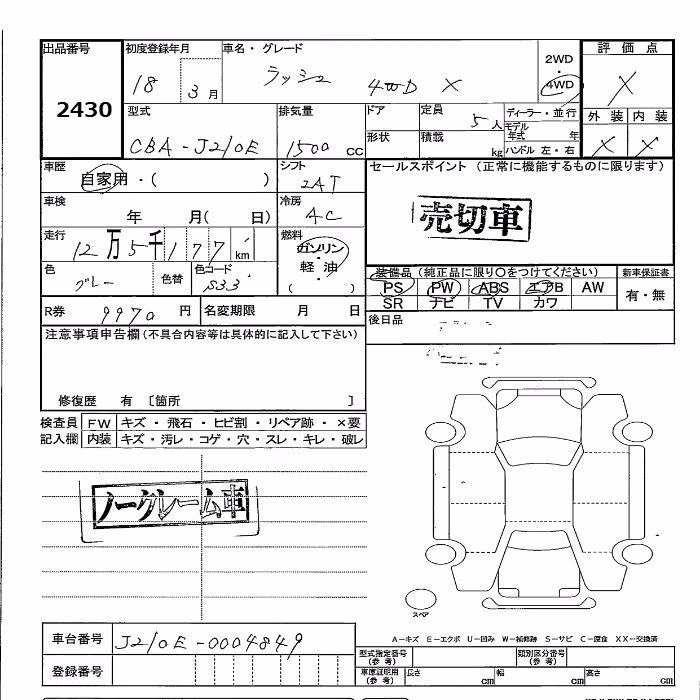 出品番号 初度登録年月 車名・グレード 2WD・4WD 評価点
2430 18 3月 ラッシュ 4WD X X
型式 排気量 ドア 定員 ディーラー・並行 外装 内装
CBA-J210E 1500cc 5人 モデル年式 年 X X
形状 積載 kg ハンドル 左・右
車歴 シフト セールスポイント (正常に機能するものに限ります)
自家用・( ) 2AT
車検 冷房
年 月( 日) AC 売切車
走行 燃料
12万5千177km ガソリン・軽油( )
色 色替 色コード 装備品(純正品に限り○をつけてください) 新車保証書
グレー S33 PS PW ABS エアB AW 有・無
SR ナビ TV カワ
R券 9970円 名変期限 月 日 後日品
注意事項申告欄(不具合内容等は具体的に記入して下さい)
修復歴 有 〔箇所 〕
検査員記入欄 FW キズ・飛石・ヒビ割・リペア跡・×要
内装 キズ・汚レ・コゲ・穴・スレ・キレ・破レ
ノークレーム車
スペア
A-キズ E-エクボ U-凹み W-補修跡 S-サビ C-腐食 XX-交換済
車台番号 J210E-0004849
型式指定番号(参考) 類別区分番号(参考)
登録番号
車庫証明用(参考) 長さ cm 幅 cm 高さ cm